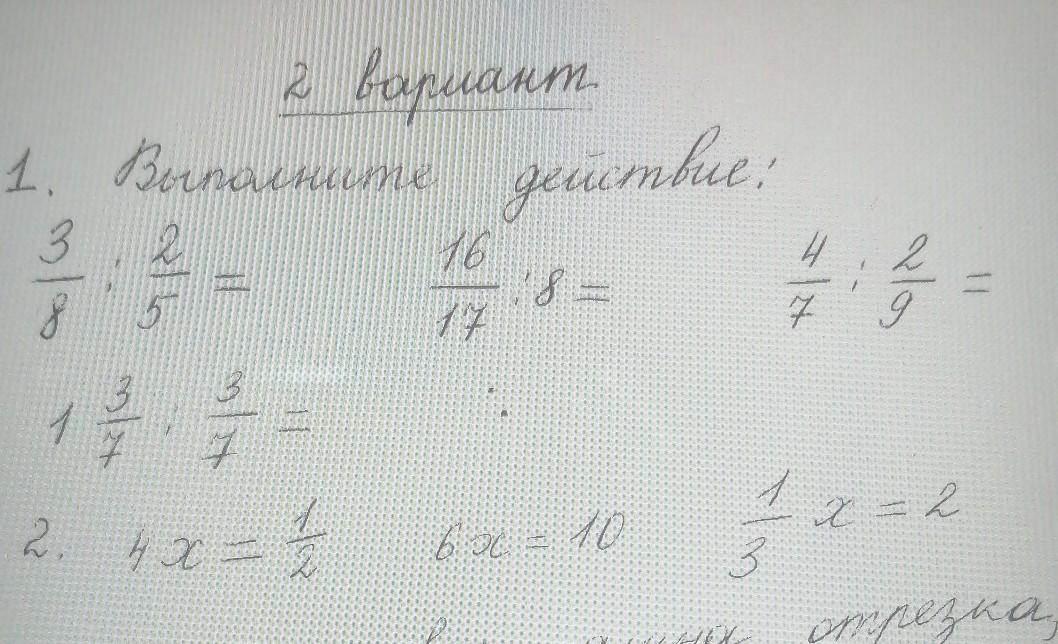 2 вариант
1. Выполните действие:
3/8 : 2/5 = 16/17 : 8 = 4/7 : 2/9 =
1 3/7 : 3/7 =
2. 4x = 1/2 6x = 10 1/3 x = 2
отрезка